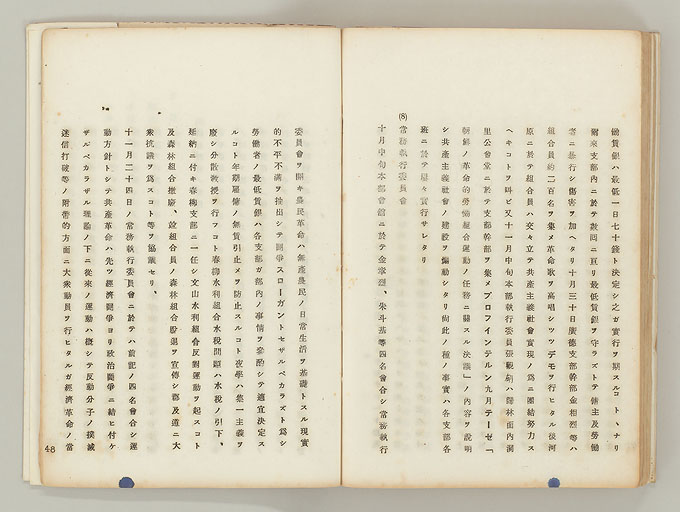 働賃銀ハ最低一日七十錢ト決定シ之ガ實行ヲ期スルコトトナリ
爾來支部内ニ於テ數回ニ亘リ最低賃銀ヲ守ラズトテ傭主及勞働
者ニ暴行シ傷害ヲ加ヘタリ十月三十日廣德支部幹部金相烈等ハ
組合員約二百名ヲ集メ革命歌ヲ高唱シツツデモヲ行ヒタル後河
原ニ於テ組合員ハ交々立テ共產主義社會實現ノ爲ニ團結努力ス
ヘキコトヲ叫ビ又十一月中旬本部執行委員張觀 ハ 林面内洞
里公會堂ニ於テ支部幹部ヲ集メプロフインテルン九月テーゼ「
朝鮮ノ革命的勞働組合運動ノ任務ニ關スル決議」ノ内容ヲ說明
シ共產主義社會ノ建設ヲ煽動シタリ尙此ノ種ノ事實ハ各支部各
班ニ於テ屢々實行サレタリ
(8)
常務執行委員會
十月中旬本部會館ニ於テ金 烈、朱斗基等四名會合シ常務執行
委員會ヲ開キ農民革命ハ無產農民ノ日常生活ヲ基礎トスル現實
的不平不滿ヲ抽出シテ鬪爭スローガントセザルベカラズト爲シ
勞働者ノ最低賃銀ハ各支部ガ部内ノ事情ヲ參酌シテ適宜決定ス
ルコト年期雇傭ノ無賃引止メヲ防止スルコト夜學ハ集一主義ヲ
廢シ分散敎授ヲ行フコト春柳水利組合水稅問題ハ水稅ノ引下、
延納ニ付キ春柳支部ニ一任シ文山水利組合反對運動ヲ起スコト
及森林組合撤廢、並組合員ノ森林組合脫退ヲ宣傳シ郡及道ニ大
衆抗議ヲ爲スコト等ヲ協議セリ、
十一月二十四日ノ常務執行委員會ニ於テハ前記ノ四名會合シ運
動方針トシテ共產革命ハ先ツ經濟鬪爭ヨリ政治鬪爭ニ結ヒ付ケ
ザルベカラザル理論ノ下ニ從來ノ運動ハ槪シテ反動分子ノ撲滅
迷信打破等ノ附帶的方面ニ大衆動員ヲ行ヒタルガ經濟革命ノ當
48